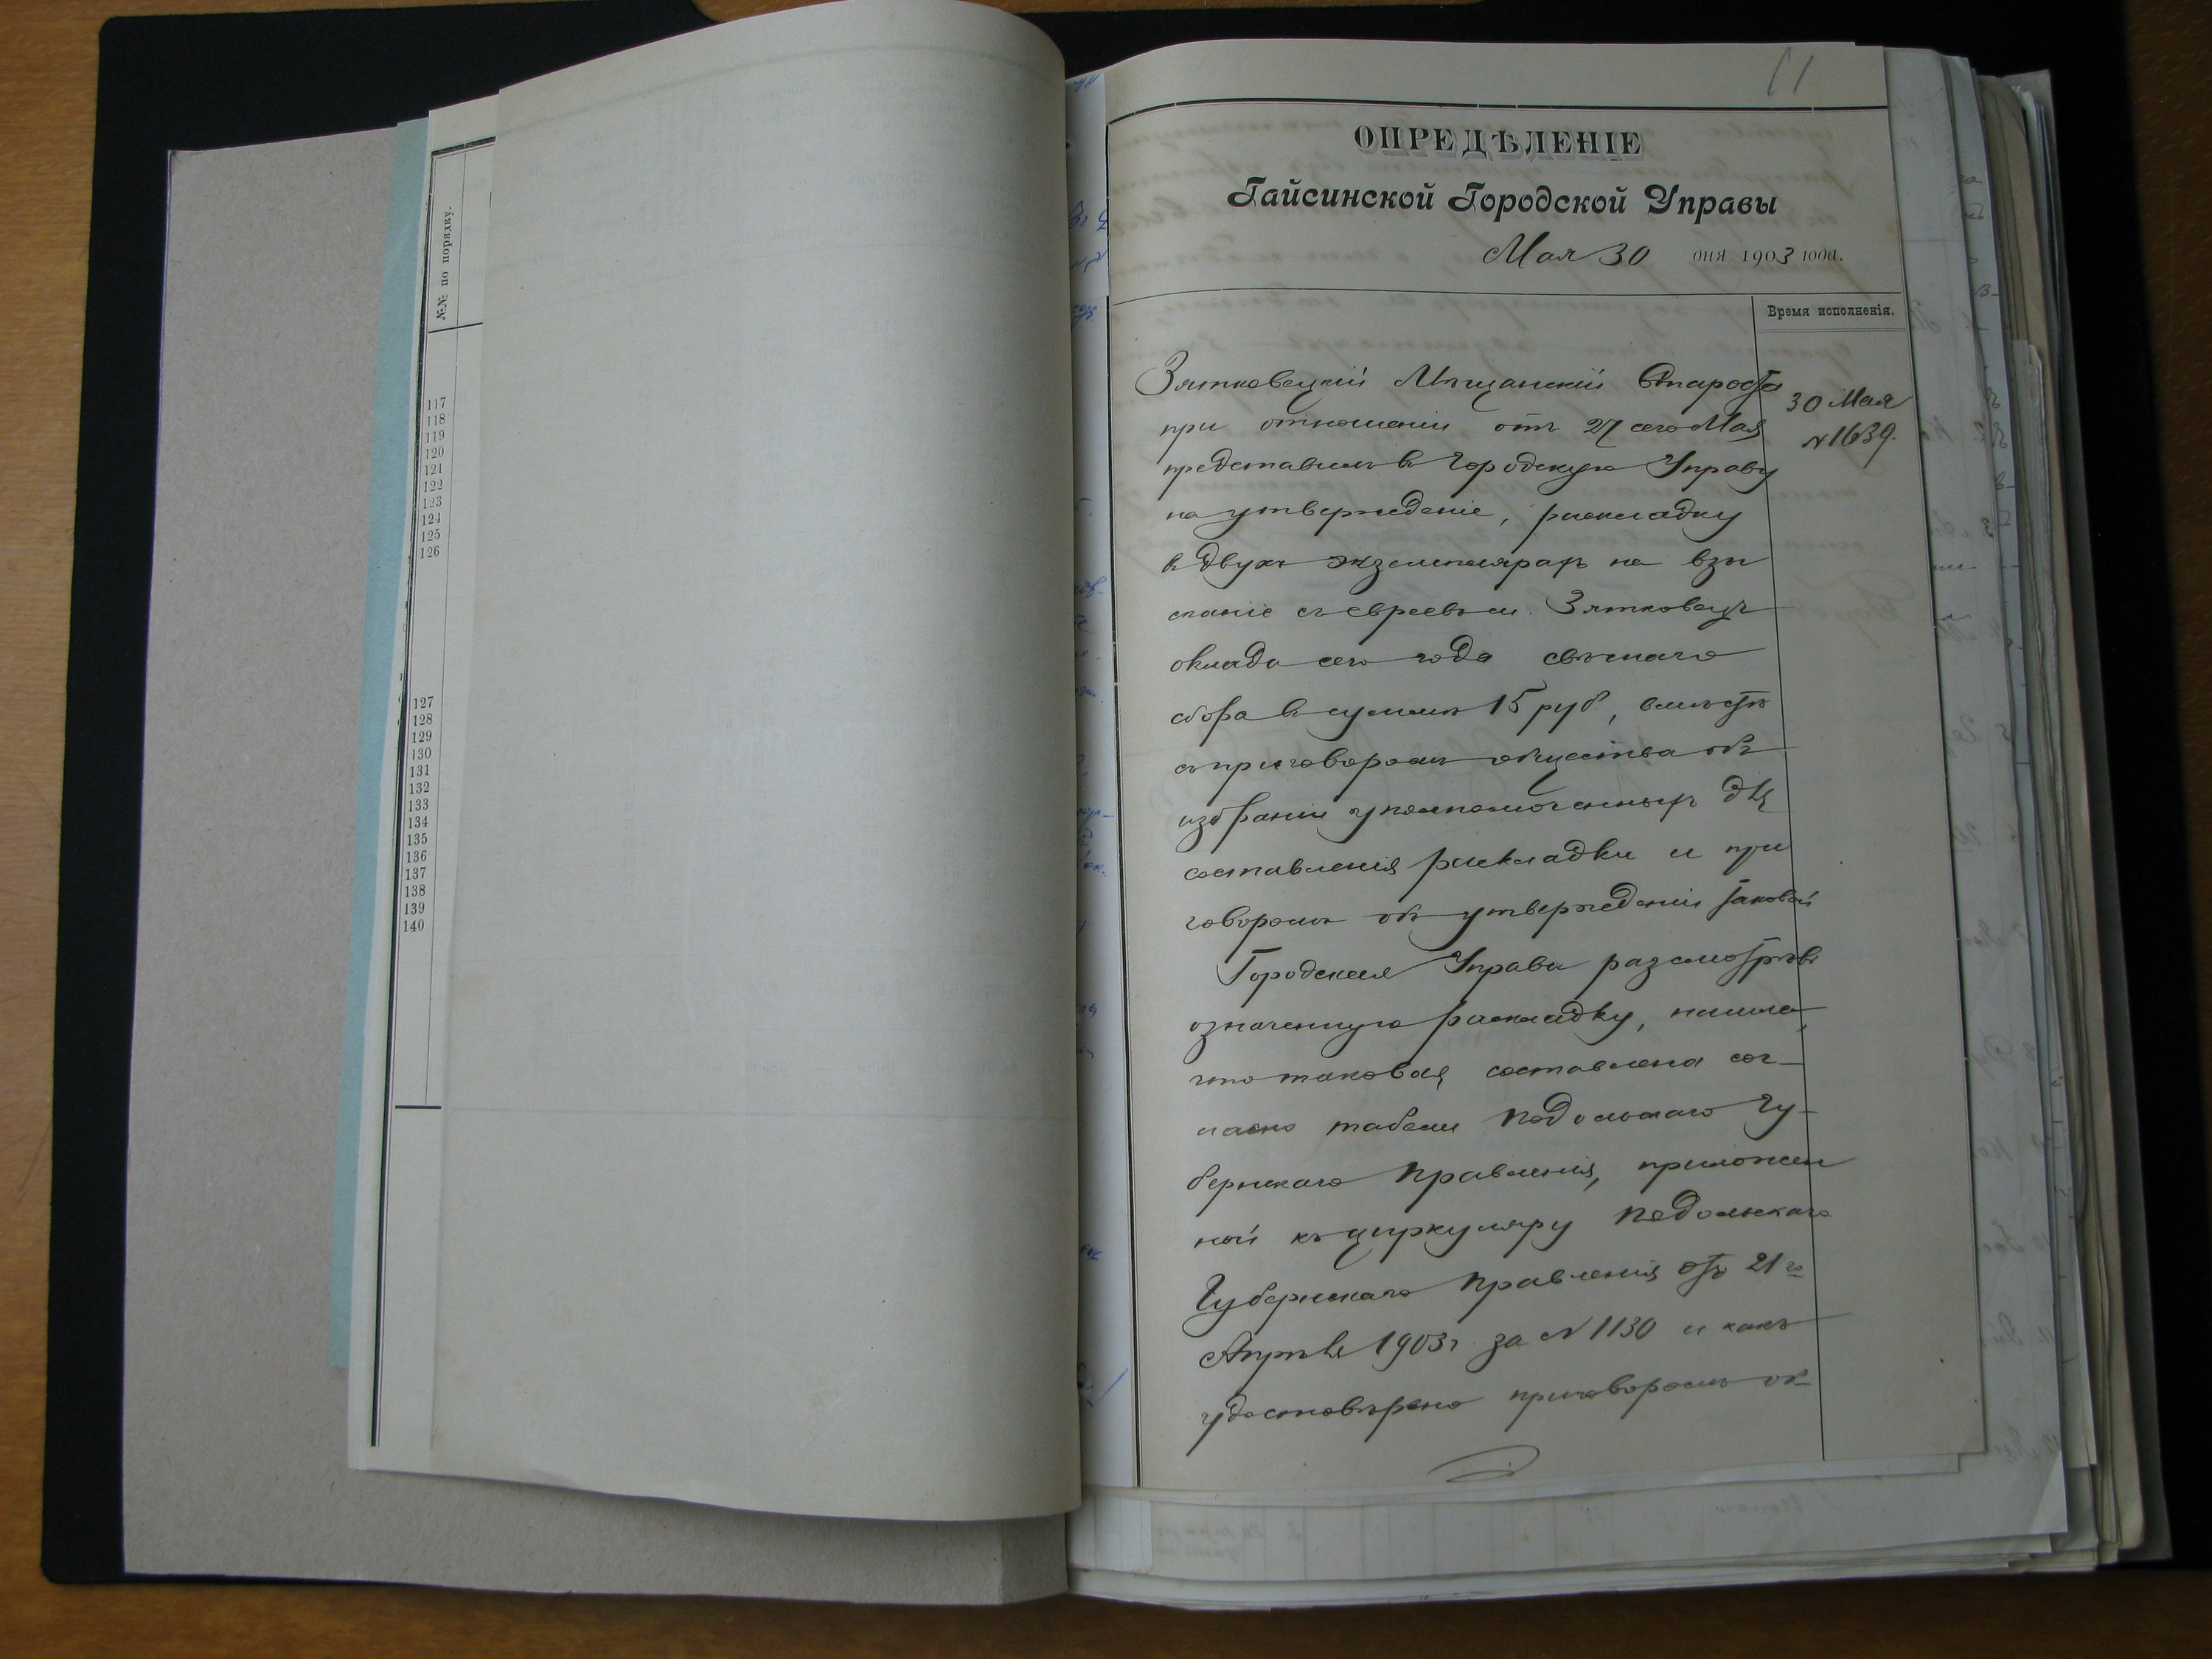 №№ по порядку.
117
118
119
120
121
122
123
124
125
126
127
128
129
130
131
132
133
134
135
136
137
138
139
140
11
ОПРЕДѢЛЕНІЕ
Гайсинской Городской Управы
Мая 30 дня 1903 года.
Время исполненія.
30 Мая
№ 1639.
Зятковецкій Мѣщанскій Староста
при отношеніи отъ 27 сего Мая
представилъ в Городскую Управу
на утвержденіе, раскладку
в двухъ экземплярахъ на взы
сканіе съ евреевъ м. Зятковецъ
оклада сего года свѣчнаго
сбора в суммѣ 15 руб., вмѣстѣ
съ приговоромъ общества объ
избраніи уполномоченныхъ для
составленія раскладки и при
говоромъ объ утвержденіи таковой
Городская Управа разсмотрѣвъ
означенную раскладку, нашла,
что таковая составлена сог-
ласно табели Подольскаго Гу-
бернскаго Правленія, приложен
ной къ циркуляру Подольскаго
Губернскаго Правленія отъ 21го
Апрѣля 1903 г. за № 1130 и какъ
удостовѣрено приговоромъ об-